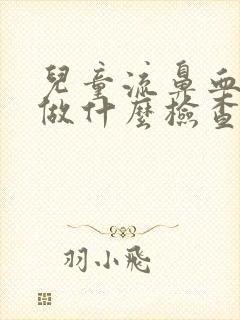 兒童流鼻血
做什麼檢查
羽小飛